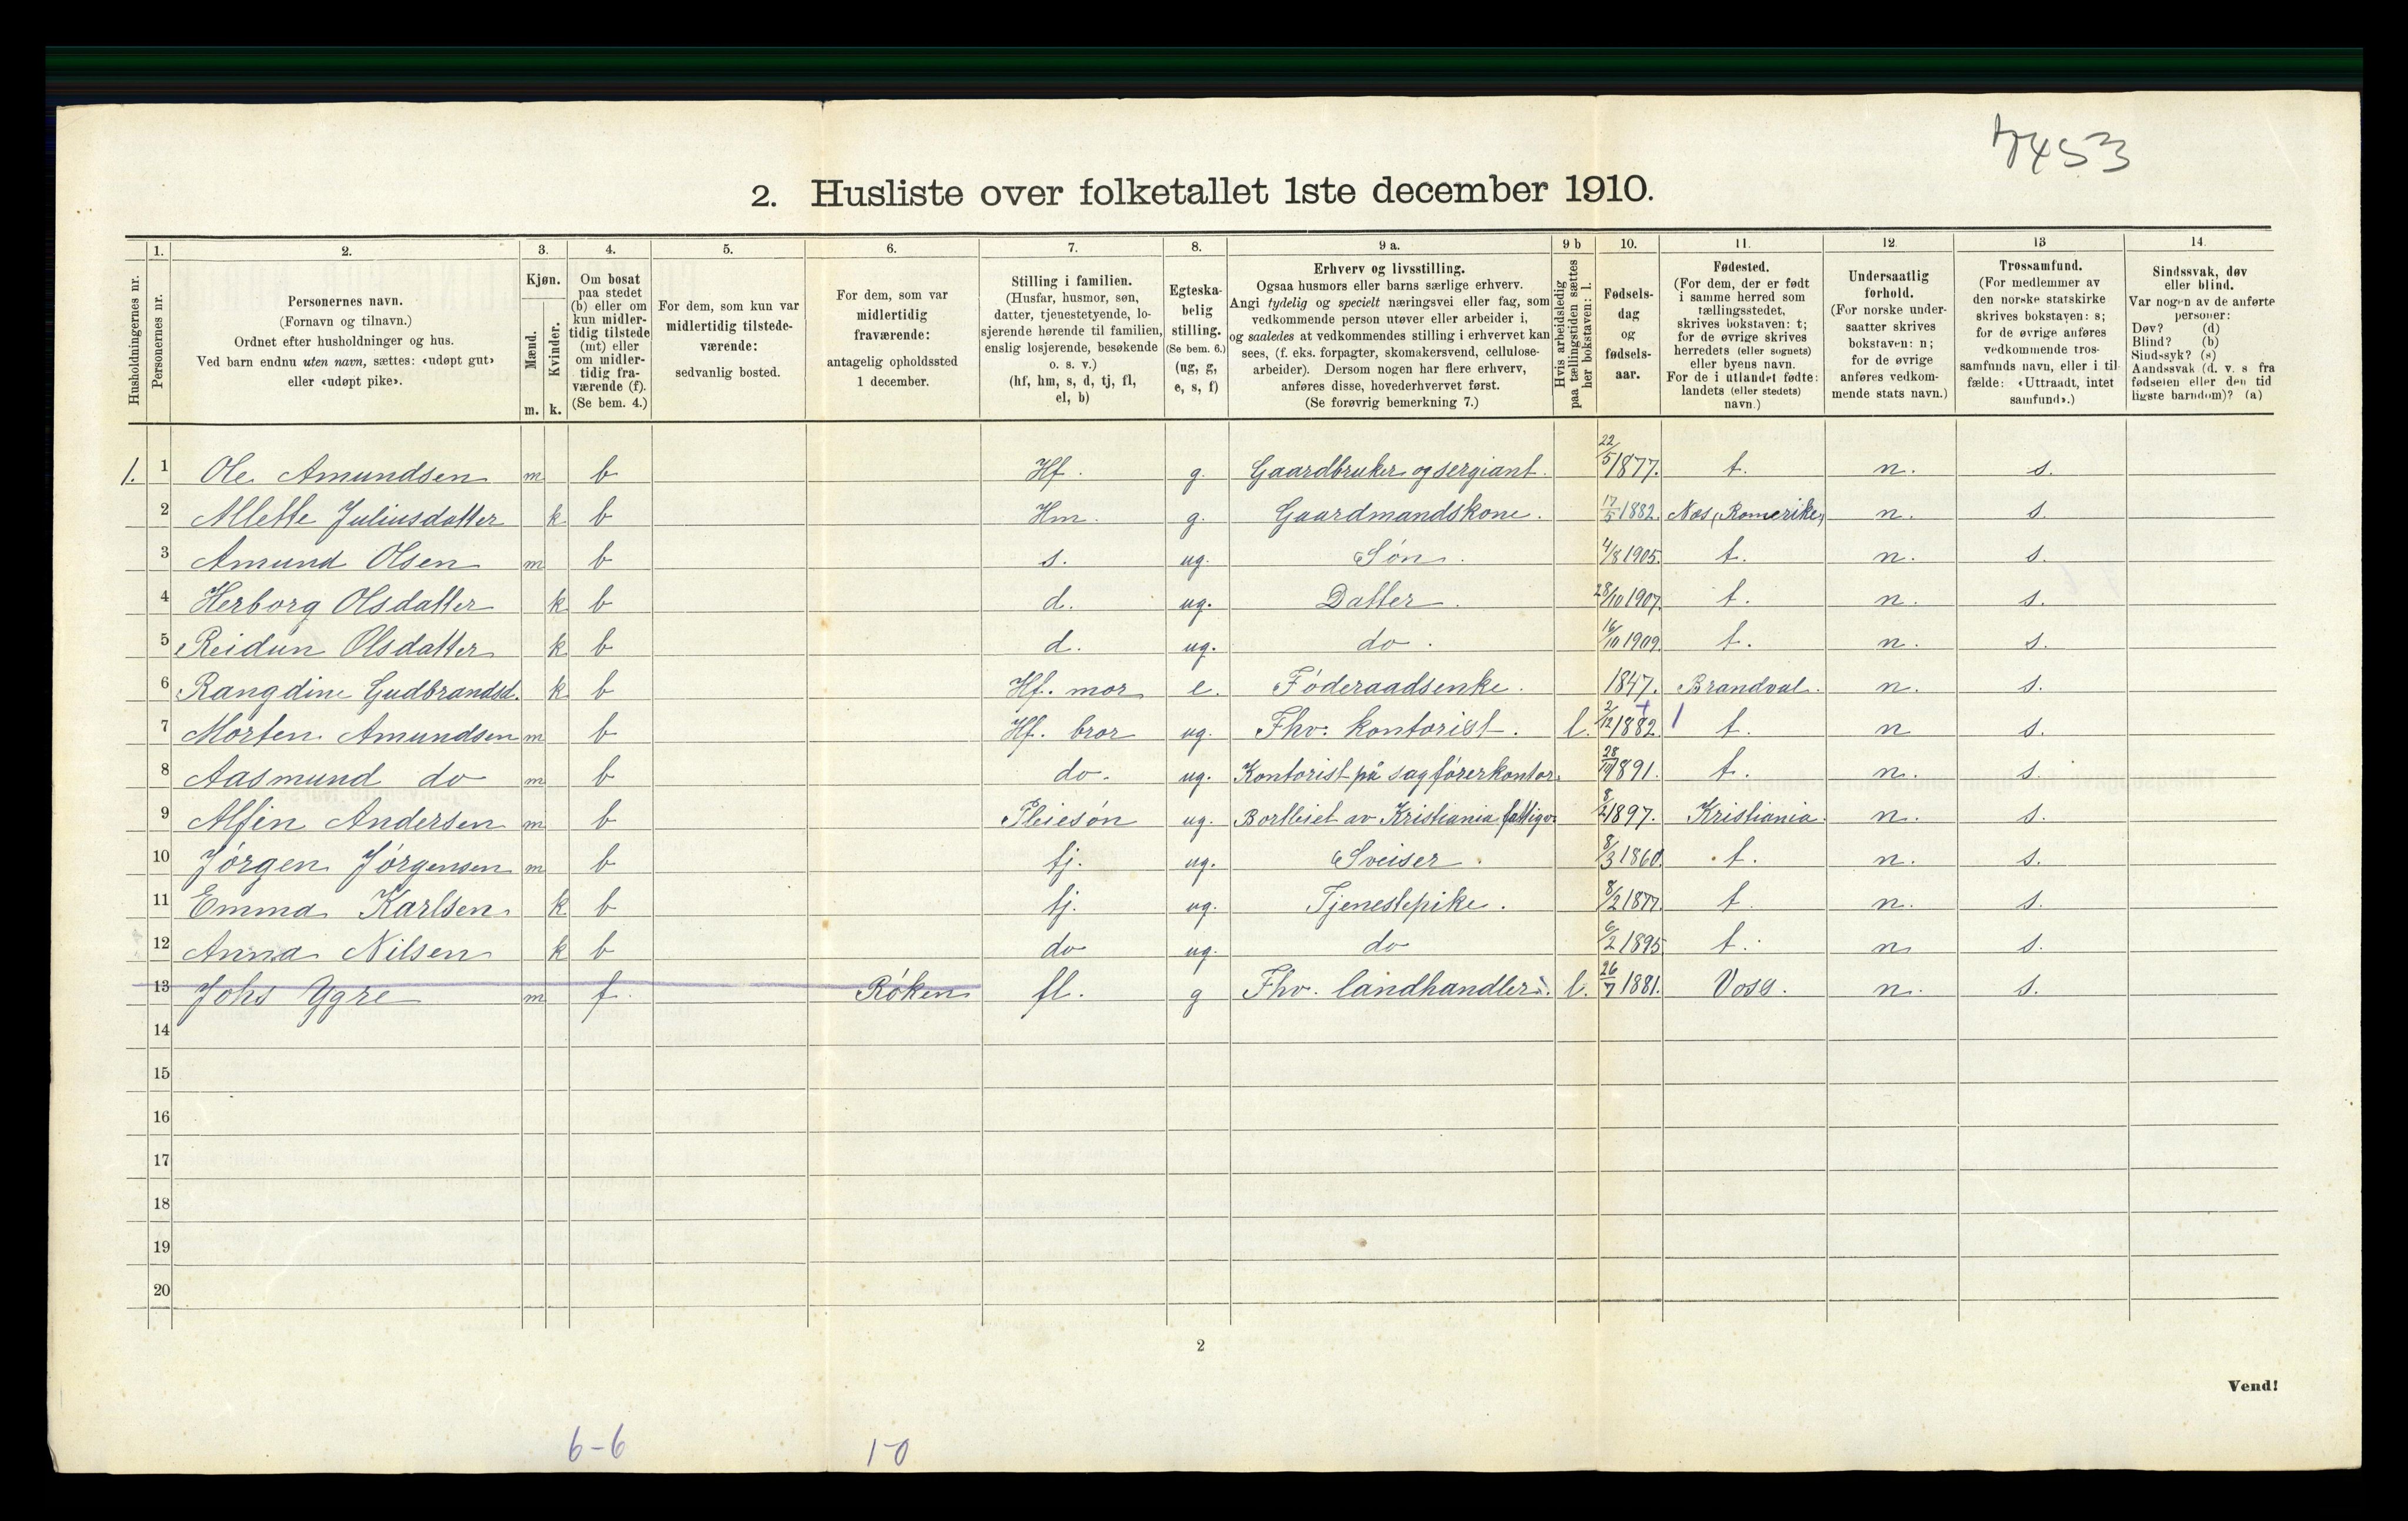 7453
2. Husliste over folketallet 1ste december 1910.
Husholdningernes nr.
1.
Personernes nr.
2.
Personernes navn.
(Fornavn og tilnavn.)
Ordnet efter husholdninger og hus.
Ved barn endnu uten navn, sættes: «udøpt gut»
eller «udøpt pike».
3.
Kjøn.
Mænd.
Kvinder.
m. k.
4.
Om bosat
paa stedet
(b) eller om
kun midler-
tidig tilstede
(mt) eller
om midler-
tidig fra-
værende (f).
(Se bem. 4.)
5.
For dem, som kun var
midlertidig tilstede-
værende:
sedvanlig bosted.
6.
For dem, som var
midlertidig
fraværende:
antagelig opholdssted
1 december.
7.
Stilling i familien.
(Husfar, husmor, søn,
datter, tjenestetyende, lo-
sjerende hørende til familien,
enslig losjerende, besøkende
o. s. v.)
(hf, hm, s, d, tj, fl,
el, b)
8.
Egteska-
belig
stilling.
(Se bem. 6.)
(ug, g,
e, s, f)
9 a.
Erhverv og livsstilling.
Ogsaa husmors eller barns særlige erhverv.
Angi tydelig og specielt næringsvei eller fag, som
vedkommende person utøver eller arbeider i,
og saaledes at vedkommendes stilling i erhvervet kan
sees, (f. eks. forpagter, skomakersvend, cellulose-
arbeider). Dersom nogen har flere erhverv,
anføres disse, hovederhvervet først.
(Se forøvrig bemerkning 7.)
9 b
Hvis arbeidsledig
paa tællingstiden sættes
her bokstaven: l.
10.
Fødsels-
dag
og
fødsels-
aar.
11.
Fødested.
(For dem, der er født
i samme herred som
tællingsstedet,
skrives bokstaven: t;
for de øvrige skrives
herredets (eller sognets)
eller byens navn.
For de i utlandet fødte:
landets (eller stedets)
navn.)
12.
Undersaatlig
forhold.
(For norske under-
saatter skrives
bokstaven: n;
for de øvrige
anføres vedkom-
mende stats navn.)
13
Trossamfund.
(For medlemmer av
den norske statskirke
skrives bokstaven: s;
for de øvrige anføres
vedkommende tros-
samfunds navn, eller i til-
fælde: «Uttraadt, intet
samfund».)
14.
Sindssvak, døv
eller blind.
Var nogen av de anførte
personer:
Døv? (d)
Blind? (b)
Sindssyk? (s)
Aandssvak (d. v. s fra
fødselen eller den tid-
ligste barndom)? (a)
1. 1 Ole Amundsen m b Hf. g. Gaardbruker og sergiant. 22/5 1877. t. n. s.
2 Allette Juliusdatter k b Hm. g. Gaardmandskone. 17/5 1882. Nes, Romerike, n. s.
3 Amund Olsen m b s. ug. Søn. 4/8 1905. t. n. s.
4 Herborg Olsdatter k b d. ug. Datter. 28/10 1907. t. n. s.
5 Reidun Olsdatter k b d. ug. do. 16/10 1909. t. n. s.
6 Rangdine Gudbrandsd. k b Hf. mor e. Føderaadsenke. 1847. Brandval. n. s.
7 Morten Amundsen m b Hf. bror ug. Fhv. kontorist. l. 2/12 1882. t. n s.
8 Aasmund do m b do. ug. Kontorist på sagførerkontor. 1891. t. n. s.
9 Alfin Andersen m b Pleiesøn ug. Bortleiet av Kristiania fattigv. 8/2 1897. Kristiania. n. s.
10 Jørgen Jørgensen m b tj. ug. Sveiser. 8/3 1860. t. n. s.
11 Emma Karlsen k b tj. ug. Tjenestepike. 8/2 1877. t. n. s.
12 Anna Nilsen k b do ug. do 6/2 1895 t. n. s.
13 Johs Ygre m f. Røken fl. g Fhv. landhandler. l. 26/7 1881. Voss. n. s.
14
15
16
17
18
19
20
2
Vend!
6-6
1-0